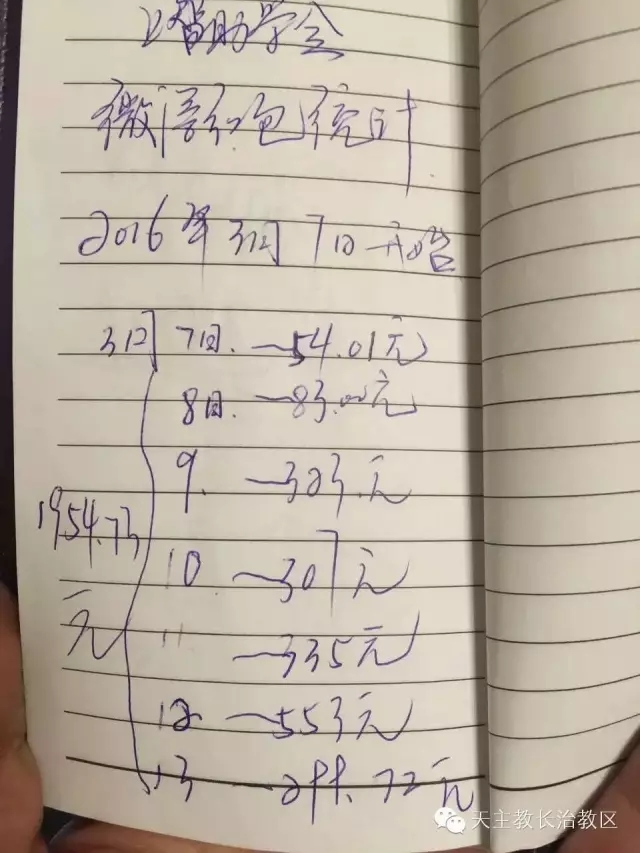 上智助学会
微信红包统计
2016年3月7日开始
3月 7日. —54.01元
8日. —83.00元
9. —323.元
1954.73
10 —307元
元
11 —335元
12 —553元
13 —299.72元
天主教长治教区